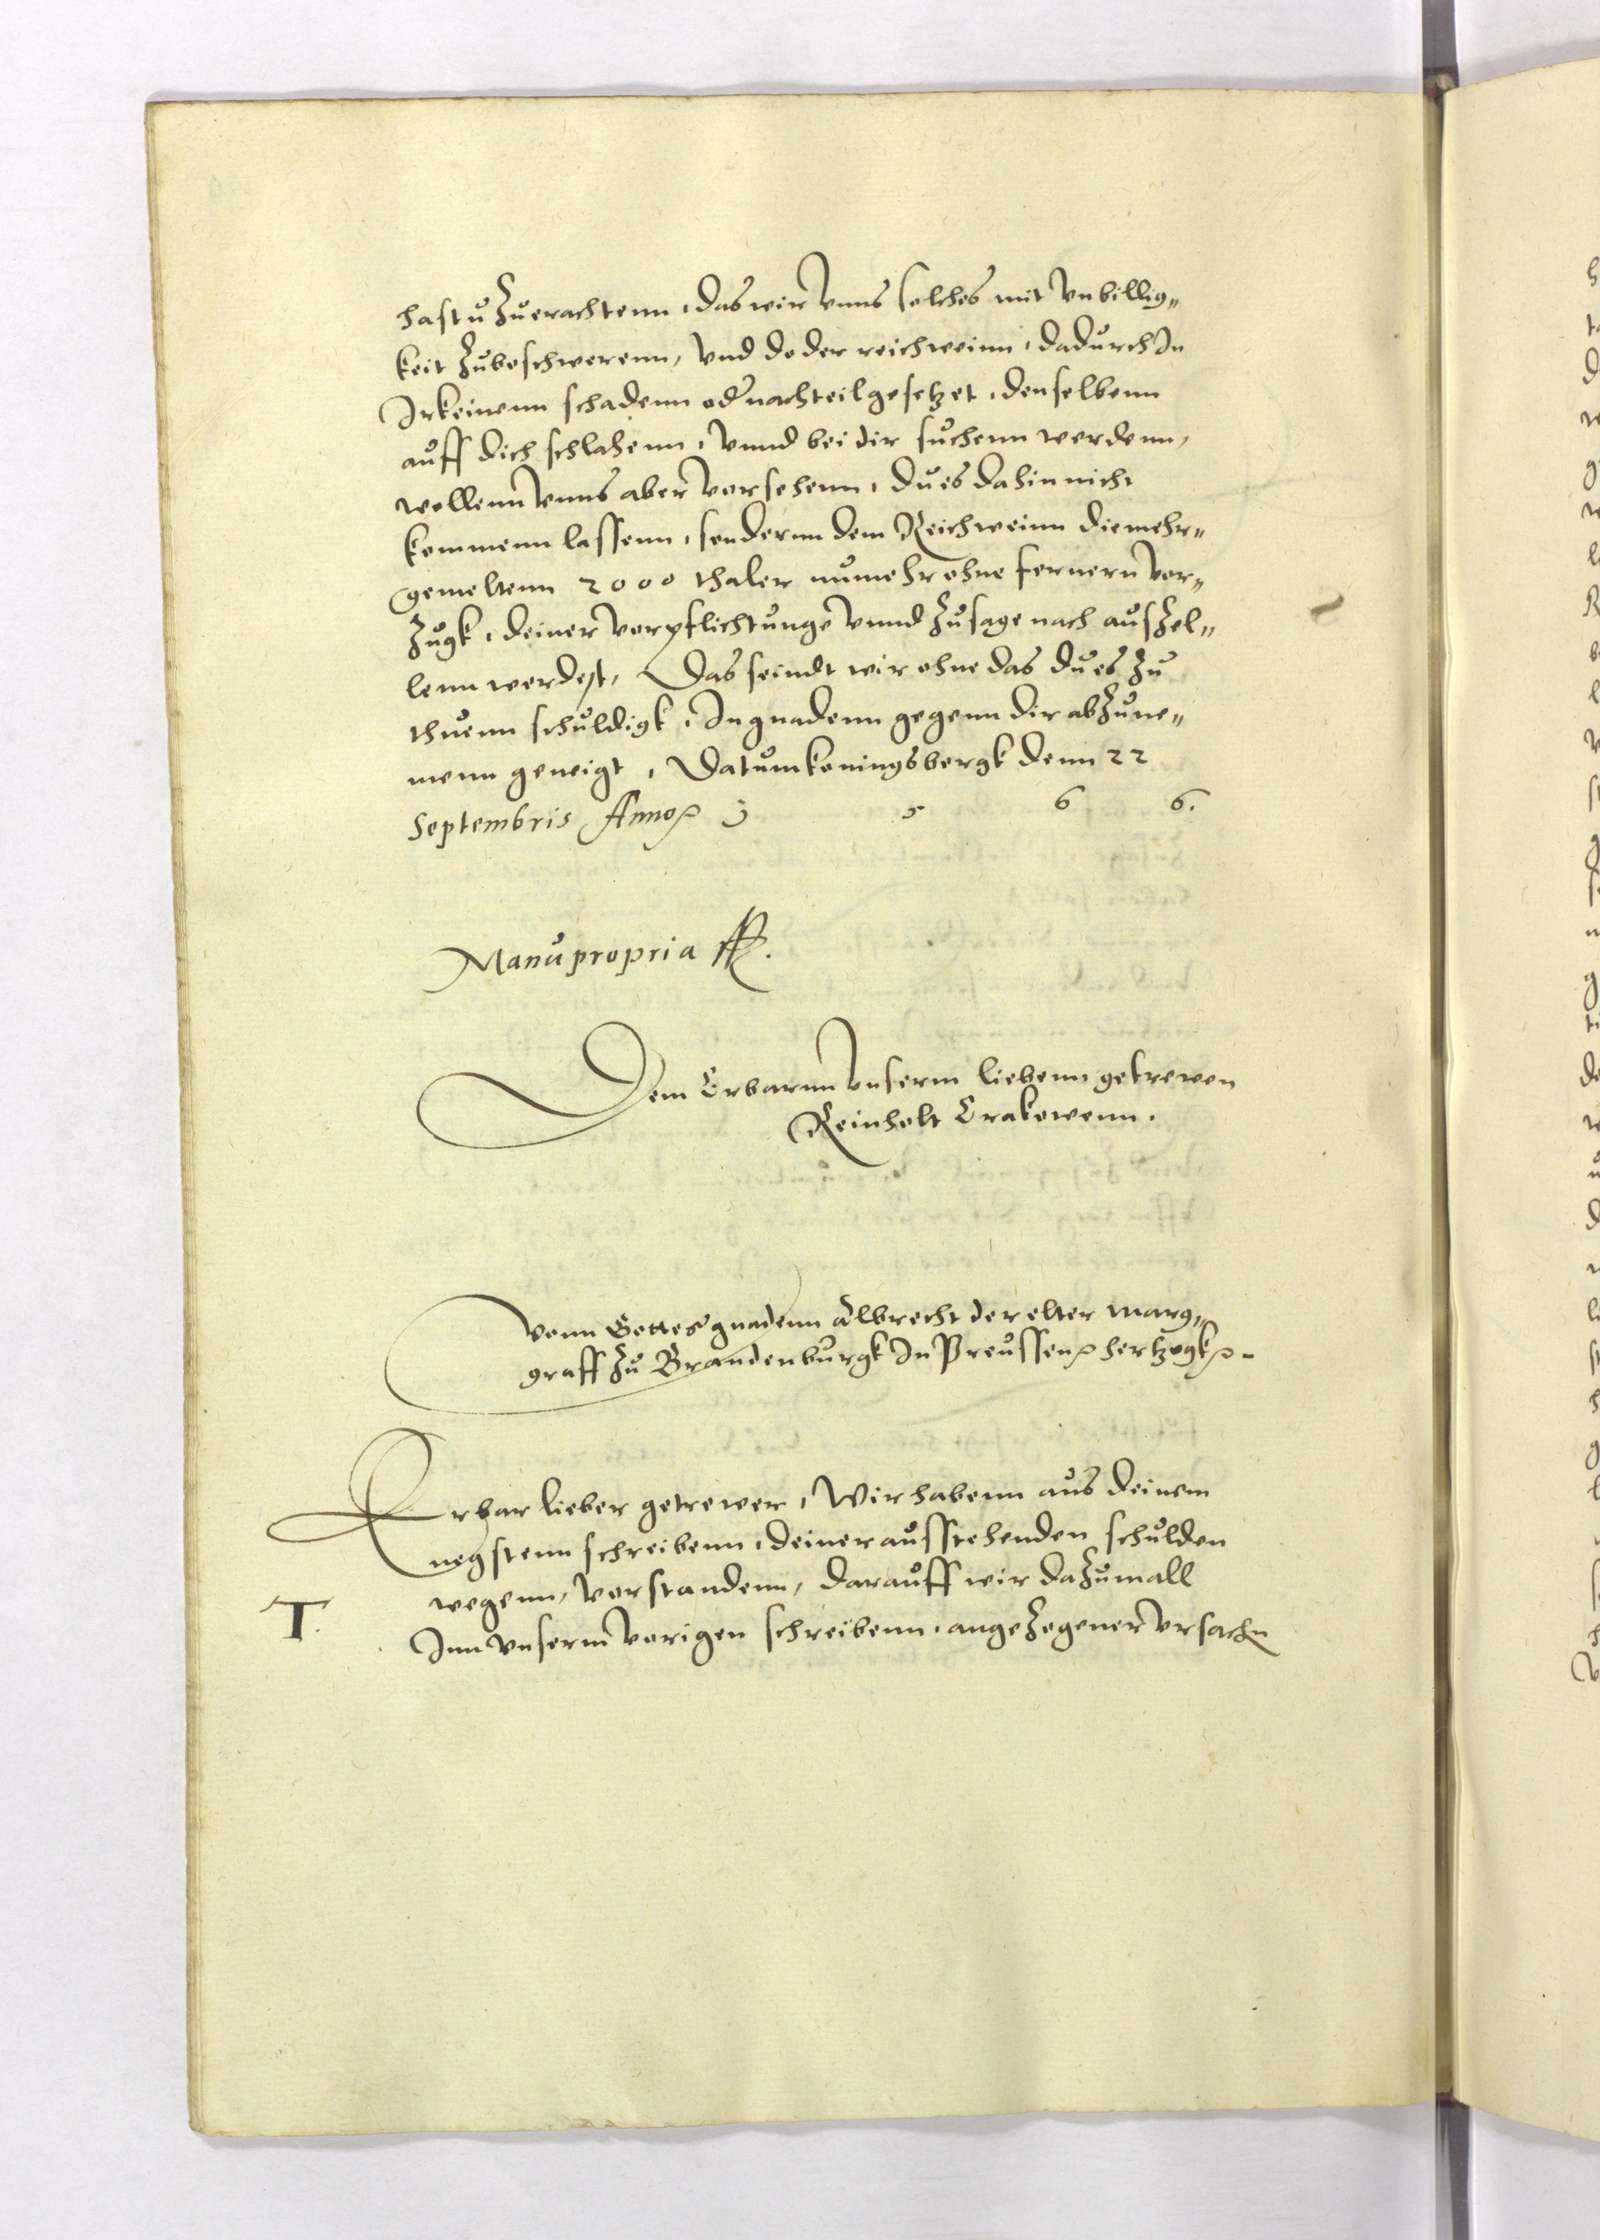 hastu Zuerachtenn, das wir vnns solches mit vnbillig„
keit Zubeschwerenn, vnd do der reichweinn, dadurch In
Irkeinenn schadenn oder nachteil gesetzet, denselbenn
auff dich schlahenn, vnnd bei dir suchenn werdenn,
wollenn vnns aber vorsehenn, du es dahin nicht
kommenn lassenn, sondernn dem Reichweinn die mehr„
gemeltenn 2000 thaler numehr ohne fernern vor„
Zugk, deiner vorpflichtunge vnnd Zusage nach ausZel„
lenn werdest, Das seindt wir ohne das du es Zu
thuenn schuldigk, In gnadenn gegenn dir abZune„
menn geneigt, Datum koningsbergk denn 22
Septembris Anno 1 5 6 6.
Manu propria
Dem Erbarnn vnserm liebenn getrewen
Reinholt Crakowenn.
Vonn Gottes gnadenn Albrecht der elter Marg„
graff Zu Brandenburgk In Preussen hertzogk
Erbar lieber getrewer, Wir habenn aus deinem
negstenn schreibenn, deiner ausstehenden schulden
wegenn, vorstandenn, darauff wir daZumall
T. Inn vnserm vorigen schreibenn, angeZogener vrsachn